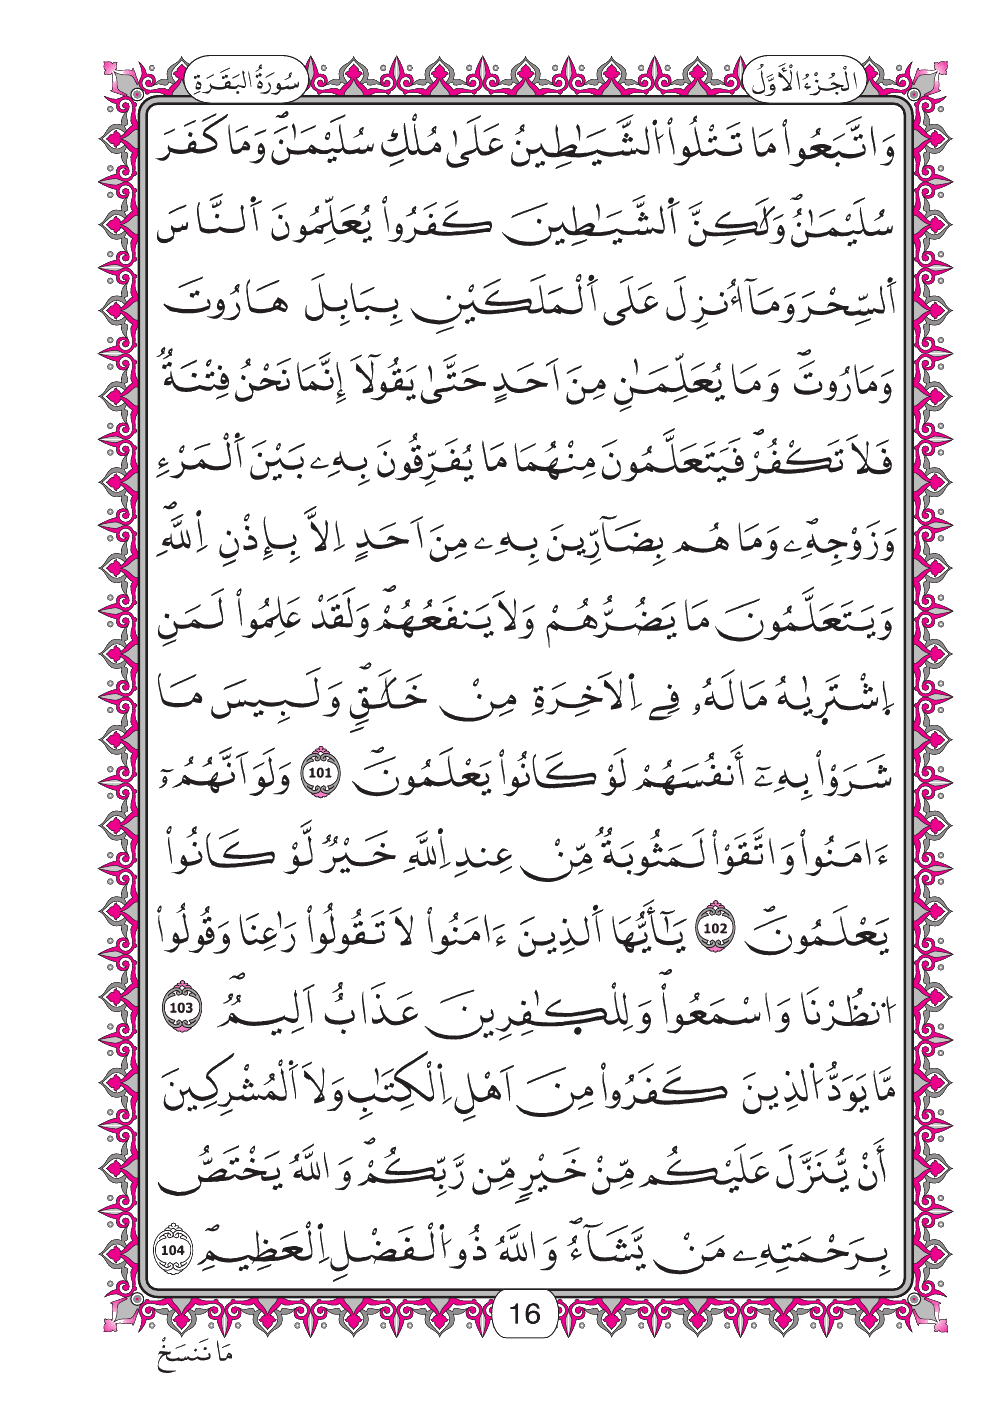 الْجُزْءُ الْأَوَّلُ
سُورَةُ الْبَقَرَةِ
وَاتَّبَعُواْ مَا تَتْلُواْ اُ۬لشَّيَٰطِينُ عَلَىٰ مُلْكِ سُلَيْمَٰنَۖ وَمَا كَفَرَ
سُلَيْمَٰنُۖ وَلَٰكِنَّ اَ۬لشَّيَٰطِينَ كَفَرُواْ يُعَلِّمُونَ اَ۬لنَّاسَ
اَ۬لسِّحْرَ وَمَآ أُنزِلَ عَلَى اَ۬لْمَلَكَيْنِ بِبَابِلَ هَارُوتَ
وَمَارُوتَۖ وَمَا يُعَلِّمَٰنِ مِنَ اَحَدٍ حَتَّىٰ يَقُولَآ إِنَّمَا نَحْنُ فِتْنَةٌۭ
فَلَا تَكْفُرْۖ فَيَتَعَلَّمُونَ مِنْهُمَا مَا يُفَرِّقُونَ بِهِۦ بَيْنَ اَ۬لْمَرْءِ
وَزَوْجِهِۦۖ وَمَا هُم بِضَآرِّينَ بِهِۦ مِنَ اَحَدٍ اِلَّا بِإِذْنِ اِ۬للَّهِۖ
وَيَتَعَلَّمُونَ مَا يَضُرُّهُمْ وَلَا يَنفَعُهُمْۖ وَلَقَدْ عَلِمُواْ لَمَنِ
اِ۪شْتَرَىٰهُ مَا لَهُۥ فِے اِ۬لَاخِرَةِ مِنْ خَلَٰقٍۖ وَلَبِيسَ مَا
شَرَوْاْ بِهِۦٓ أَنفُسَهُمْ لَوْ كَانُواْ يَعْلَمُونَۖ 101 وَلَوَ اَنَّهُمُۥٓ
ءَامَنُواْ وَاتَّقَوْاْ لَمَثُوبَةٌۭ مِّنْ عِندِ اِ۬للَّهِ خَيْرٌۭ لَّوْ كَانُواْ
يَعْلَمُونَۖ 102 يَٰٓأَيُّهَا اَ۬لذِينَ ءَامَنُواْ لَا تَقُولُواْ رَٰعِنَا وَقُولُواْ
اُ۟نظُرْنَا وَاسْمَعُواْۖ وَلِلْكٰ۪فِرِينَ عَذَابٌ اَلِيمٌۭۖ 103
مَّا يَوَدُّ اُ۬لذِينَ كَفَرُواْ مِنَ اَهْلِ اِ۬لْكِتَٰبِ وَلَا اَ۬لْمُشْرِكِينَ
أَنْ يُّنَزَّلَ عَلَيْكُم مِّنْ خَيْرٍ مِّن رَّبِّكُمْۖ وَاللَّهُ يَخْتَصُّ
بِرَحْمَتِهِۦ مَنْ يَّشَآءُۖ وَاللَّهُ ذُو اُ۬لْفَضْلِ اِ۬لْعَظِيمِۖ 104
16
مَا نَنسَخْ